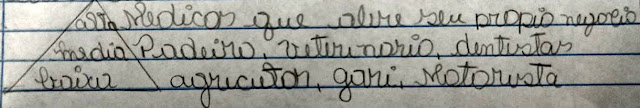 alta Medicos que abre seu propio negocio
media Padeiro, veterinario, dentistas
baixa agricutor, gari, Motorista